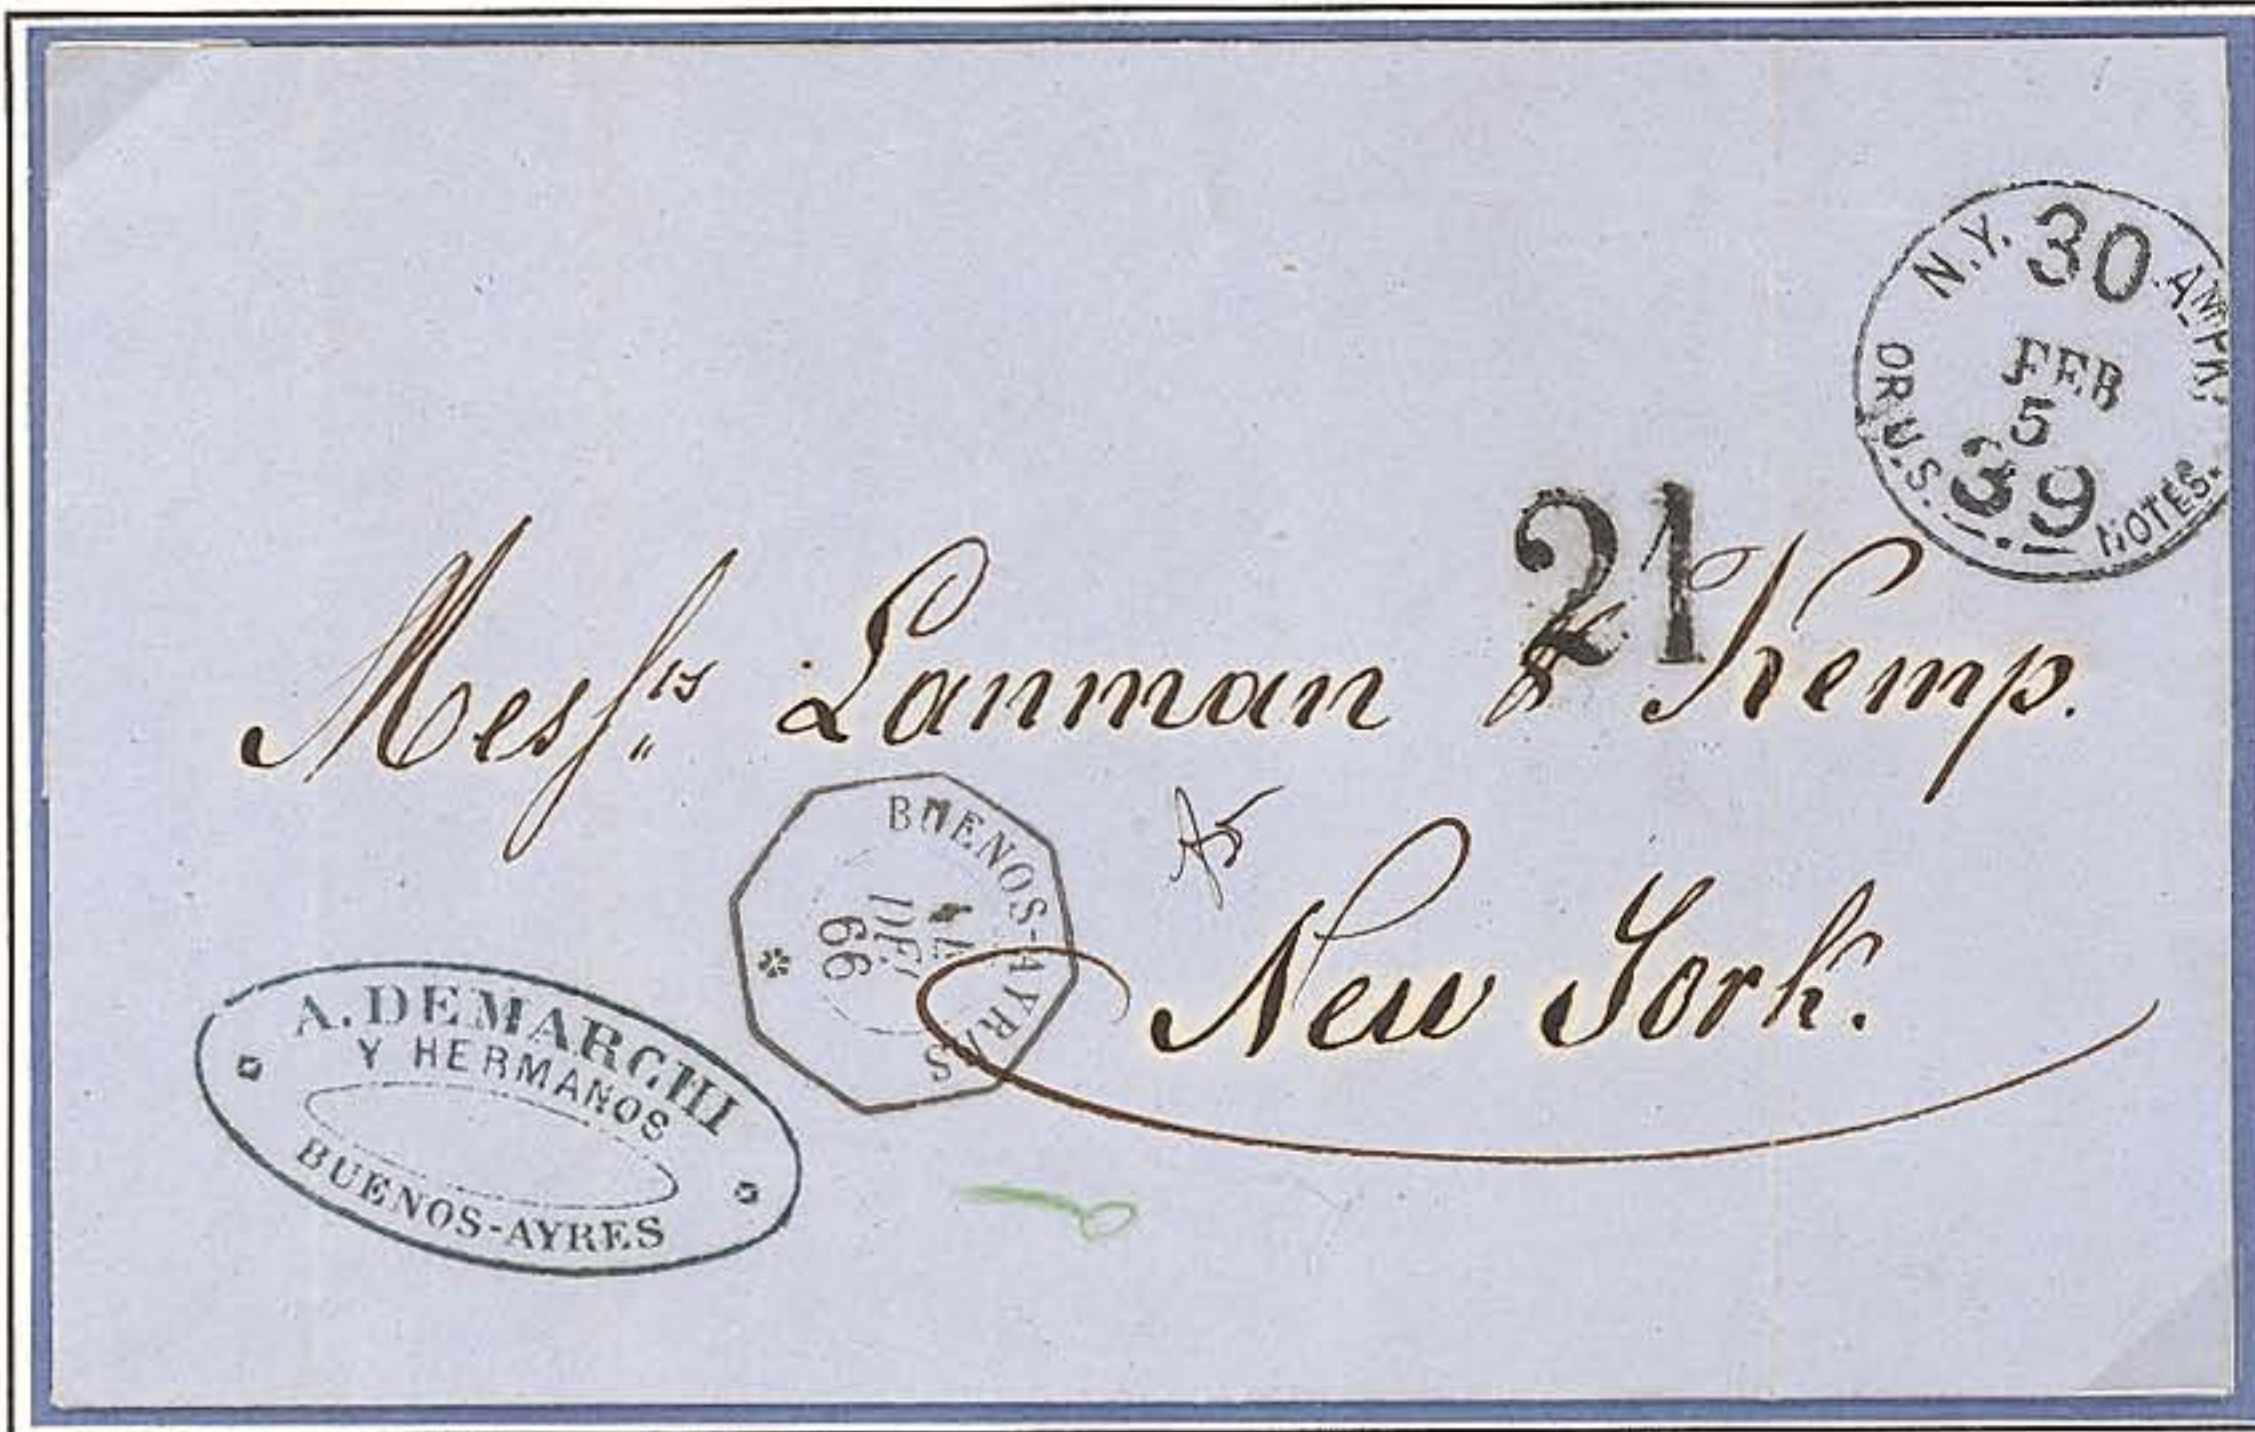 N.Y. 30 AM. PKT.
FEB
5
OR U.S. 39 NOTES.
21
Messrs. Lanman & Kemp.
New York.
BUENOS-AYRES
DEC
66
A. DEMARCHI
Y HERMANOS
BUENOS-AYRES